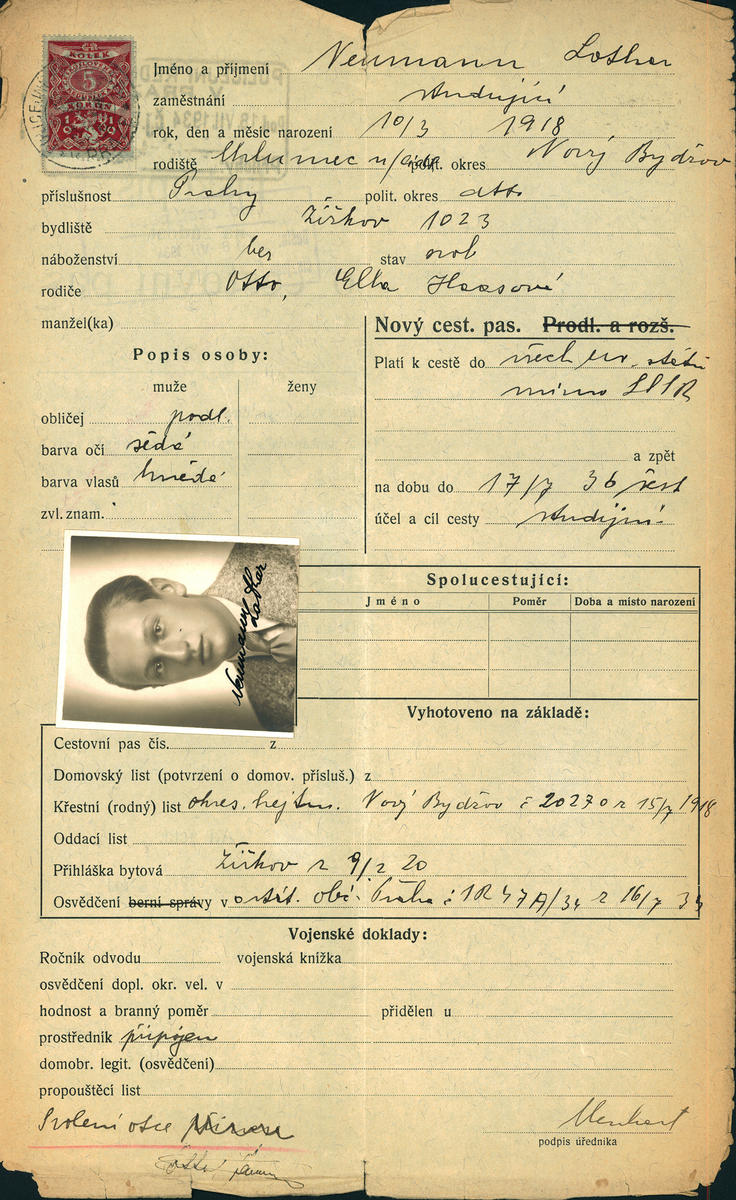 KOLEK
5
KORUN
Jméno a příjmení Neumann Lothar
zaměstnání studující
rok, den a měsíc narození 10/3 1918
rodiště Chlumec n/Cidl polit. okres Nový Bydžov
příslušnost Prahy polit. okres dtto
bydliště Žižkov 1023
náboženství bez stav svob
rodiče Otto, Ella Haasová
manžel(ka)
Nový cest. pas. Prodl. a rozš.
Popis osoby:
Platí k cestě do všech evr. států
mimo SSSR
muže ženy
obličej podl.
barva očí šedé
barva vlasů hnědé
zvl. znam.
a zpět
na dobu do 17/7 36
účel a cíl cesty studijní
Neumann
Lothar
Spolucestující:
Jméno Poměr Doba a místo narození
Vyhotoveno na základě:
Cestovní pas čís. z
Domovský list (potvrzení o domov. přísluš.) z
Křestní (rodný) list okres. hejtm. Nový Bydžov č 20270 z 15/7 1918
Oddací list
Přihláška bytová Žižkov z 9/2 20
Osvědčení berní správy v stát. obč. Praha č 1R 47A/34 z 16/7 34
Vojenské doklady:
Ročník odvodu vojenská knížka
osvědčení dopl. okr. vel. v
hodnost a branný poměr přidělen u
prostředník připojen
domobr. legit. (osvědčení)
propouštěcí list
Svolení otce
podpis úředníka